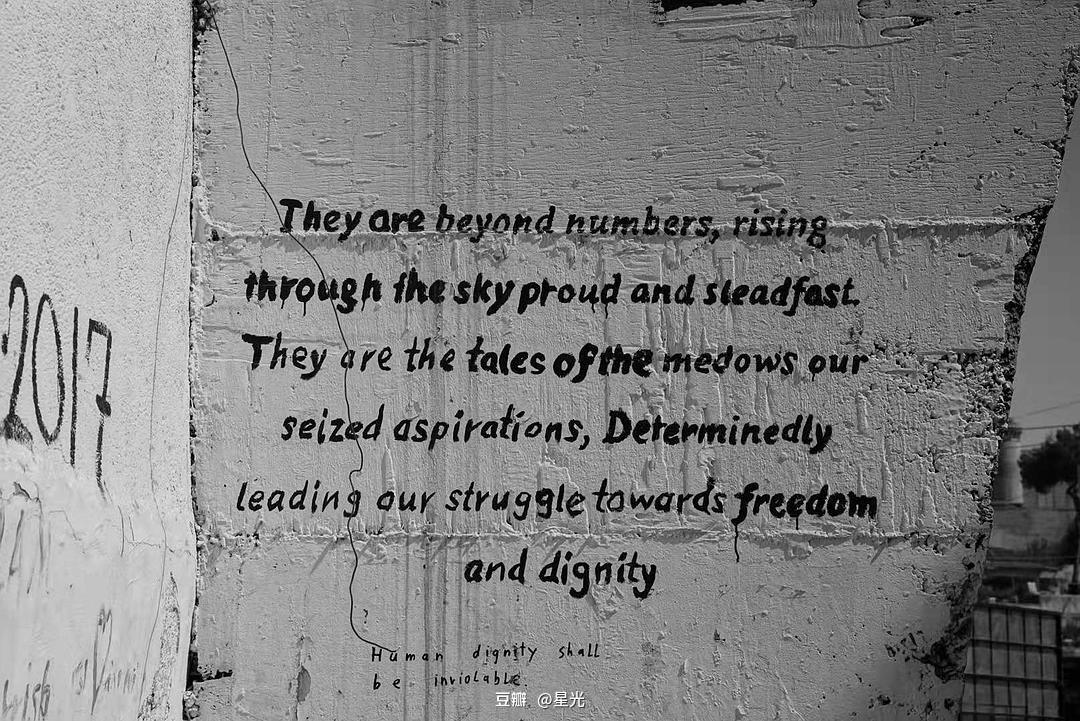 They are beyond numbers, rising
through the sky proud and steadfast.
They are the tales of the medows our
seized aspirations, Determinedly
leading our struggle towards freedom
and dignity
2017
?
Human dignity shall
be inviolable.
豆瓣 @星光